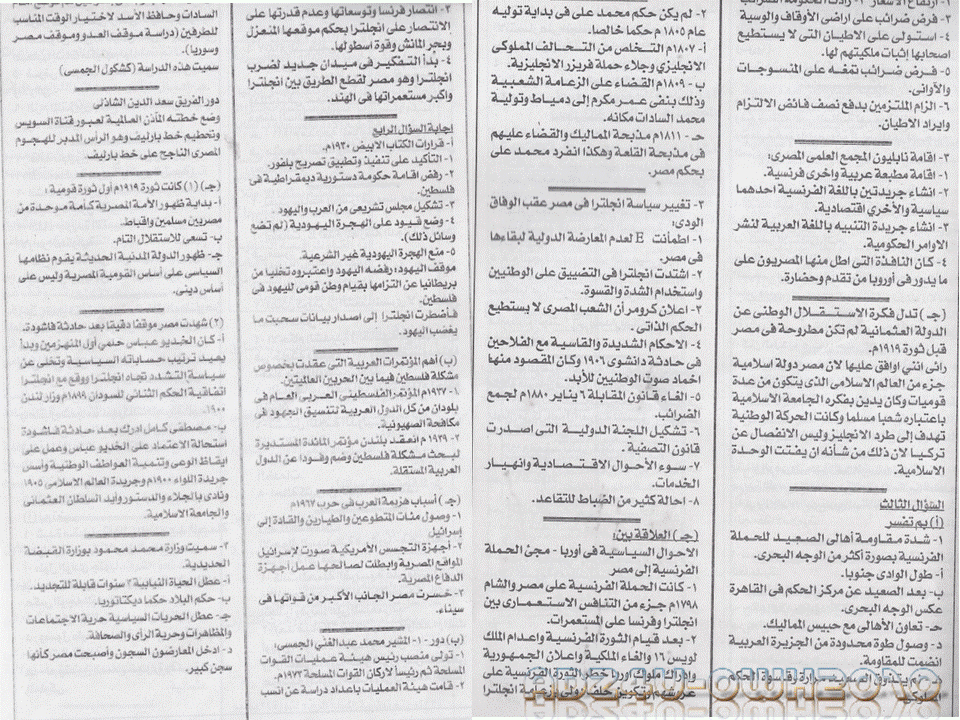 ١- ارتفاع الأسعار
٣- فرض ضرائب على اراضى الأوقاف والوسية
٤- استولى على الاطيان التى لا يستطيع
اصحابها إثبات ملكيتهم لها.
٥- فرض ضرائب تمغه على المنسوجات
والأوانى.
٦- الزام الملتزمين بدفع نصف فائض الالتزام
وايراد الاطيان.
٣- اقامة نابليون المجمع العلمى المصرى:
١- اقامة مطبعة عربية واخرى فرنسية.
٢- انشاء جريدتين باللغة الفرنسية احدهما
سياسية والأخرى اقتصادية.
٣- انشاء جريدة التنبيه باللغة العربية لنشر
الاوامر الحكومية.
٤- كان النافذة التى اطل منها المصريون على
ما يدور فى أوروبا من تقدم وحضارة.
(جـ) تدل فكرة الاستقلال الوطنى عن
الدولة العثمانية لم تكن مطروحة فى مصر
قبل ثورة ١٩١٩م.
رائى اننى اوافق عليها لان مصر دولة اسلامية
جزء من العالم الاسلامى الذى يتكون من عدة
قوميات وكان يدين بفكره الجامعة الاسلامية
باعتباره شعبا مسلما وكانت الحركة الوطنية
تهدف إلى طرد الانجليز وليس الانفصال عن
تركيا لان ذلك من شأنه ان يفتت الوحدة
الاسلامية.
السؤال الثالث
(أ) بم تفسر
١- شدة مقاومة أهالى الصعيد للحملة
الفرنسية بصورة أكثر من الوجه البحرى.
أ- طول الوادى جنوبا.
ب- بعد الصعيد عن مركز الحكم فى القاهرة
عكس الوجه البحرى.
حـ- تعاون الأهالى مع حبيس المماليك.
د- وصول طوة محدودة من الجزيرة العربية
انضمت للمقاومة.
وقاسوة الحكم
٢- لم يكن حكم محمد على فى بداية توليه
عام ١٨٠٥م حكما خالصا.
أ- ١٨٠٧م التخلص من التحالف المملوكى
الانجليزى وجلاء حملة فريزر الانجليزية.
ب- ١٨٠٩م القضاء على الزعامة الشعبية
وذلك بنفى عمر مكرم إلى دمياط وتولية
محمد السادات مكانه.
حـ- ١٨١١م مذبحة المماليك والقضاء عليهم
فى مذبحة القلعة وهكذا انفرد محمد على
بحكم مصر.
٣- تغيير سياسة انجلترا فى مصر عقب الوفاق
الودى:
١- اطمأنت E لعدم المعارضة الدولية لبقاءها
فى مصر.
٢- اشتدت انجلترا فى التضييق على الوطنيين
واستخدام الشدة والقسوة.
٣- اعلان كرومر أن الشعب المصرى لا يستطيع
الحكم الذاتى.
٤- الاحكام الشديدة والقاسية مع الفلاحين
فى حادثة دنشواى ١٩٠٦ وكان المقصود منها
اخماد صوت الوطنيين للأبد.
٥- الغاء قانون المقابلة ٦ يناير ١٨٨٠م لجمع
الضرائب.
٦- تشكيل اللجنة الدولية التى اصدرت
قانون التصفية.
٧- سوء الأحوال الاقتصادية وانهيار
الخدمات.
٨- احالة كثير من الضباط للتقاعد.
(جـ) العلاقة بين:
الاحوال السياسية فى أوربا - مجئ الحملة
الفرنسية إلى مصر
١- كانت الحملة الفرنسية على مصر والشام
١٧٩٨م جزء من التنافس الاستعمارى بين
انجلترا وفرنسا على المستعمرات.
٢- بعد قيام الثورة الفرنسية واعدام الملك
لويس ١٦ والغاء الملكية واعلان الجمهورية
وإدراك ملوك اوربا خطر الثورة الفرنسية على
عرشهم
٣- انتصار فرنسا وتوسعاتها وعدم قدرتها على
الانتصار على انجلترا بحكم موقعها المنعزل
وبحر المانش وقوة اسطولها.
٤- بدأ التفكير فى ميدان جديد لضرب
انجلترا وهو مصر لقطع الطريق بين انجلترا
وأكبر مستعمراتها فى الهند.
اجابة السؤال الرابع
أ- قرارات الكتاب الابيض ١٩٣٠م.
١- التأكيد على تنفيذ وتطبيق تصريح بلفور.
٢- رفض اقامة حكومة دستورية ديمقراطية فى
فلسطين.
٣- تشكيل مجلس تشريعى من العرب واليهود.
٤- وضع قيود على الهجرة اليهودية (لم تضع
وسائل ذلك).
٥- منع الهجرة اليهودية غير الشرعية.
موقف اليهود: رفضه اليهود واعتبروه تخليا من
بريطانيا عن التزامها بقيام وطن قومى لليهود فى
فلسطين.
فأضطرت انجلترا إلى اصدار بيانات سحبت ما
يغضب اليهود.
(ب) أهم المؤتمرات العربية التى عقدت بخصوص
مشكلة فلسطين فيما بين الحربين العالميتين.
١- ١٩٣٧م المؤتمر الفلسطينى العربى العام فى
بلودان من كل الدول العربية لتنسيق الجهود فى
مكافحة الصهيونية.
٢- ١٩٣٩م انعقد بلندن مؤتمر المائدة المستديرة
لبحث مشكلة فلسطين وضم وفودا عن الدول
العربية المستقلة.
(جـ) أسباب هزيمة العرب فى حرب ١٩٦٧م
١- وصول مئات المتطوعين والطيارين والقادة إلى
إسرائيل
٢- أجهزة التجسس الأمريكية صورت لإسرائيل
المواقع المصرية وابطلت لصالحها عمل أجهزة
الدفاع المصرية.
٣- خسرت مصر الجانب الأكبر من قواتها فى
سيناء.
(ب) دور - ١- المشير محمد عبدالغنى الجمسى:
١- تولى منصب رئيس هيئة عمليات القوات
المسلحة ثم رئيسا لاركان القوات المسلحة ١٩٧٣م.
٢- قامت هيئة العمليات باعداد دراسة عن انسب
السادات وحافظ الأسد لاختيار الوقت المناسب
للطرفين (دراسة موقف العدو وموقف مصر
وسوريا).
سميت هذه الدراسة (كشكول الجمسى)
دور الفريق سعد الدين الشاذلى
وضع خطته المآذن العالمية لعبور قناة السويس
وتحطيم خط بارليف وهو الرأس المدبر للهجوم
المصرى الناجح على خط بارليف.
(جـ) (١) كانت ثورة ١٩١٩م أول ثورة قومية:
أ- بداية ظهور الأمة المصرية كأمة موحدة من
مصريين مسلمين واقباط.
ب- تسعى للاستقلال التام.
جـ- ظهور الدولة المدنية الحديثة يقوم نظامها
السياسى على أساس القومية المصرية وليس على
أساس دينى.
(٢) شهدت مصر موقفا دقيقا بعد حادثة فاشودة.
أ- كان الخديو عباس حلمى أول المنهزمين وبدأ
يعيد ترتيب حساباته السياسية وتخلى عن
سياسة التشدد تجاه انجلترا ووقع مع انجلترا
اتفاقية الحكم الثنائى للسودان ١٨٩٩م وزار لندن
١٩٠٠.
ب- مصطفى كامل ادرك بعد حادثة فاشودة
استحالة الاعتماد على الخديو عباس وعمل على
ايقاظ الوعى وتنمية العواطف الوطنية وأسس
جريدة اللواء ١٩٠٠م وجريدة العالم الاسلامى ١٩٠٥
ونادى بالجلاء والدستور وأيد السلطان العثمانى
والجامعة الاسلامية.
٣- سميت وزارة محمد محمود بوزارة القبضة
الحديدية.
أ- عطل الحياة النيابية ٣ سنوات قابلة للتجديد.
ب- حكم البلاد حكما ديكتاتوريا.
جـ- عطل الحريات السياسية حرية الاجتماعات
والمظاهرات وحرية الرأى والصحافة.
د- ادخل المعارضون السجون وأصبحت مصر كأنها
سجن كبير.